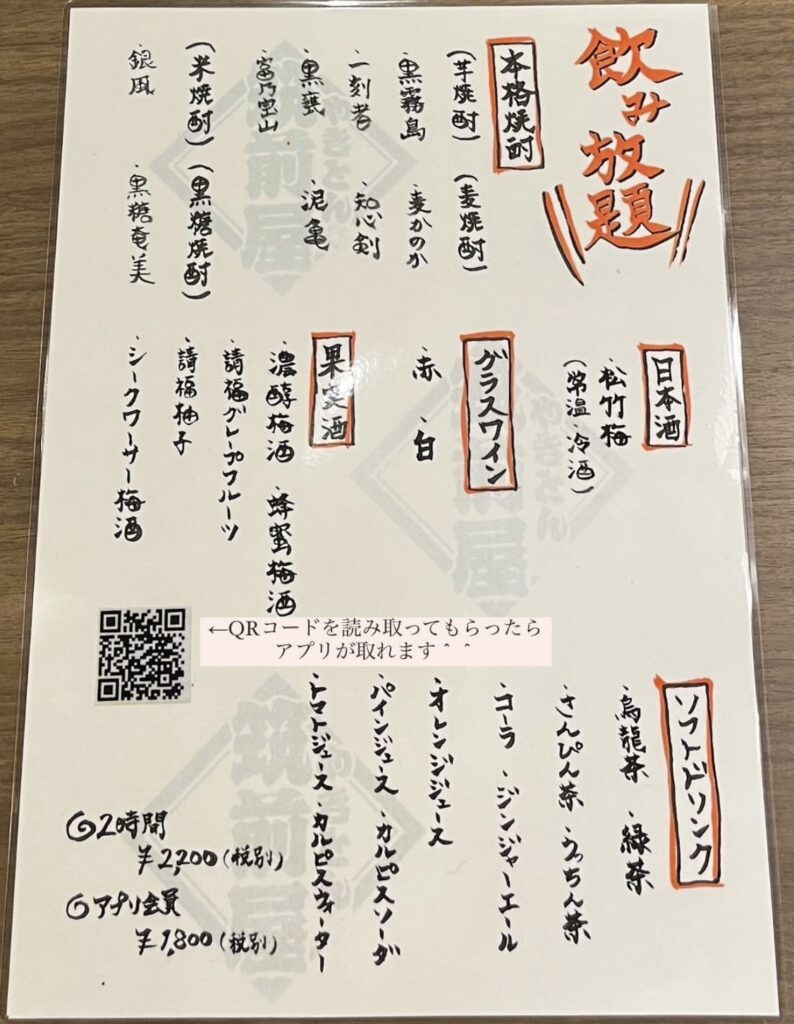 飲み放題
本格焼酎
(芋焼酎) (麦焼酎)
・黒霧島 ・麦かのか
・一刻者 ・知心剣
・黒甕 ・泥亀
・富乃宝山
(米焼酎) (黒糖焼酎)
・銀凪 ・黒糖奄美
日本酒
・松竹梅
(常温・冷酒)
グラスワイン
・赤 ・白
果実酒
・濃醇梅酒 ・蜂蜜梅酒
・請福グレープフルーツ
・請福柚子
・シークワーサー梅酒
←QRコードを読み取ってもらったら
アプリが取れます＾＾
ソフトドリンク
・烏龍茶 ・緑茶
・さんぴん茶 ・うっちん茶
・コーラ ・ジンジャーエール
・オレンジジュース
・パインジュース ・カルピスソーダ
・トマトジュース ・カルピスウォーター
◎2時間
¥2,200(税別)
◎アプリ会員
¥1,800(税別)
やきとん
筑前屋
やきとん
筑前屋
やきとん
筑前屋